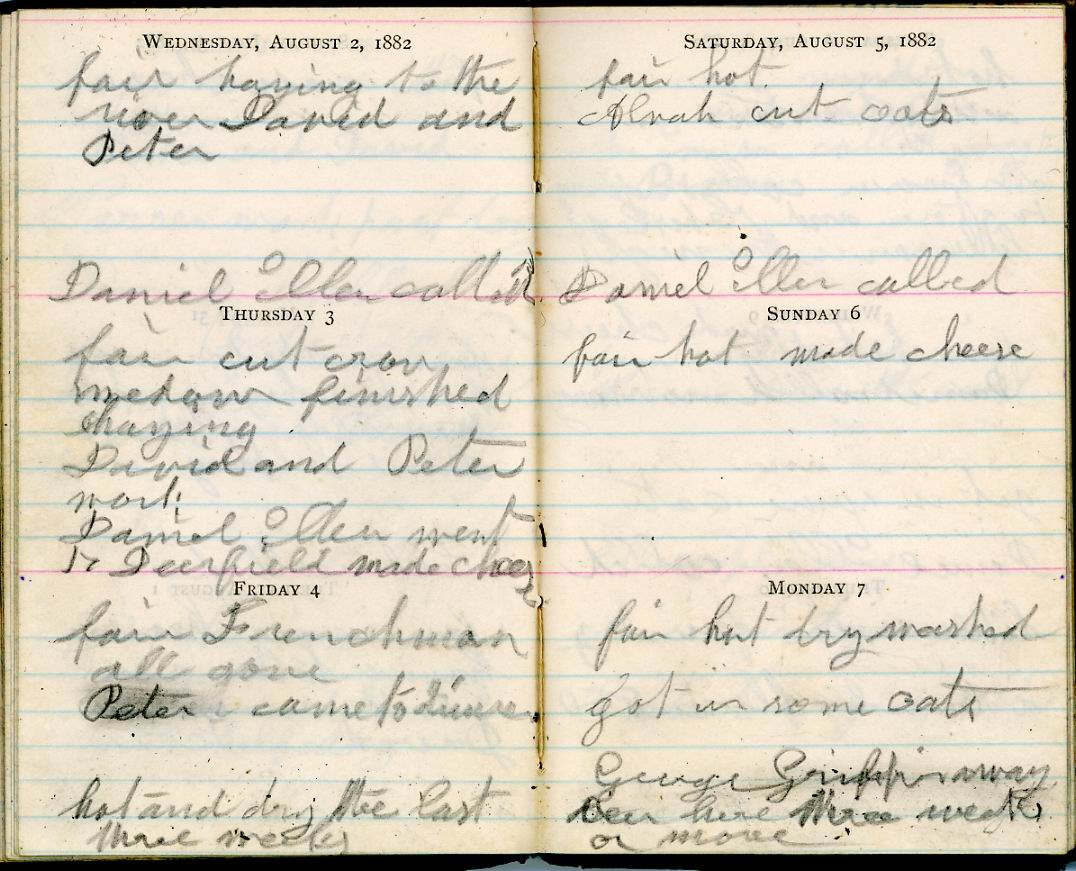 WEDNESDAY, AUGUST 2, 1882
fair haying to the
river David and
Peter
Daniel Ellen called
THURSDAY 3
fair cut crow
medow finished
haying
David and Peter
work
Daniel Ellen went
to Deerfield made chees
FRIDAY 4
fair Frenchman
all gone
Peter came to dinner
hot and dry the last
three weeks
SATURDAY, AUGUST 5, 1882
fair hot
Alvah cut oats
Daniel Ellen called
SUNDAY 6
fair hot made cheese
MONDAY 7
fair hot dry washed
got in some oats
George Griffin away
been here three weeks
or more